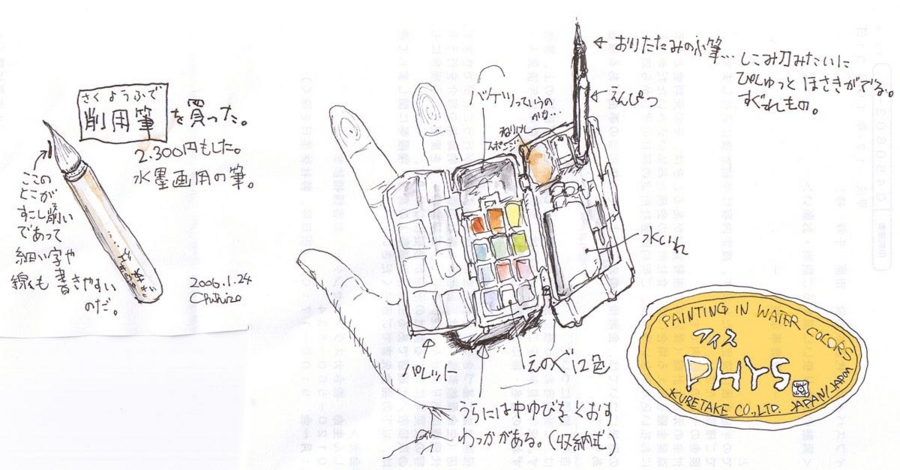 さくようふで
削用筆を買った。
2.300円もした。
水墨画用の筆。
ここの
とこが
すこし削い
であって
細い字や
線も書きやすい
のだ。
2006.1.24
Chihiro
バケツっていうの
かな…
ねりけし
スポンジ
← おりたたみの小筆…
しこみ刀みたいに
ぴしゅっと ほさきがでる。
すぐれもの。
← えんぴつ
水いれ
パレット
えのぐ12色
うらには中ゆびをとおす
わっかがある。(収納式)
PAINTING IN WATER COLORS
フィス
PHYS
KURETAKE CO.,LTD. JAPAN/JAPON